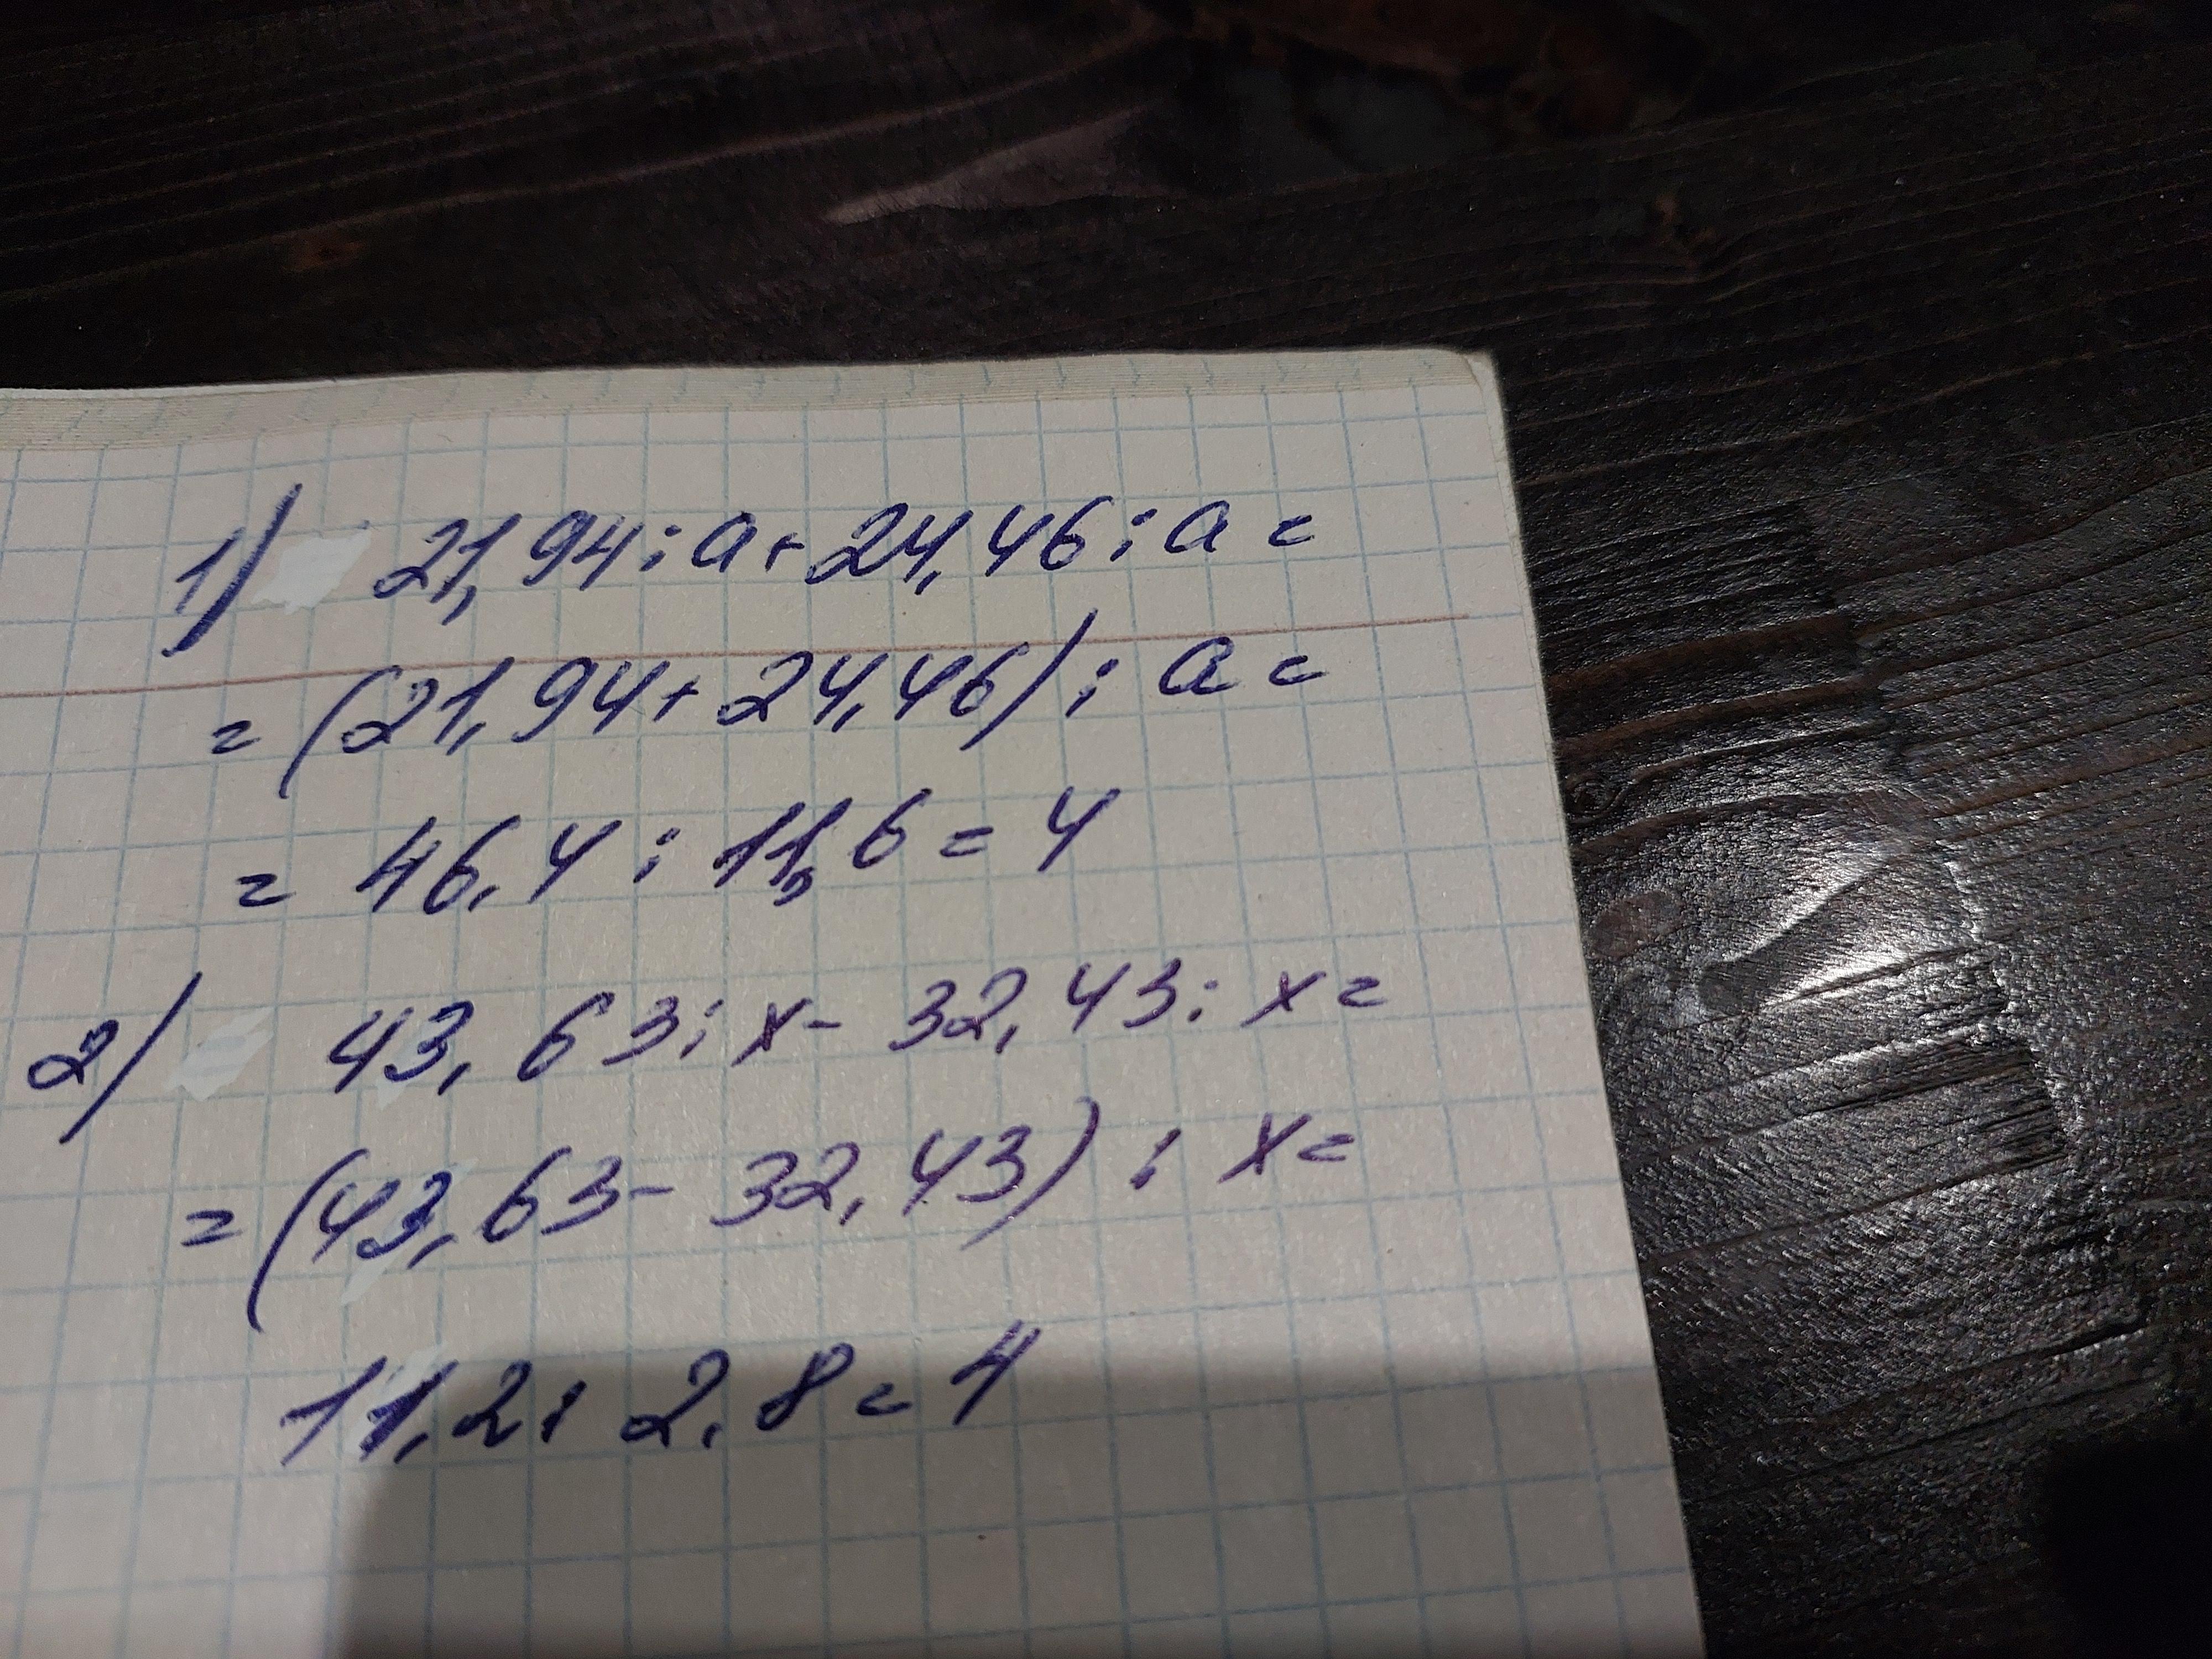 1) 21,94 : a + 24,46 : a =
= (21,94 + 24,46) : a =
= 46,4 : 11,6 = 4
2) 43,63 : x - 32,43 : x =
= (43,63 - 32,43) : x =
11,2 : 2,8 = 4